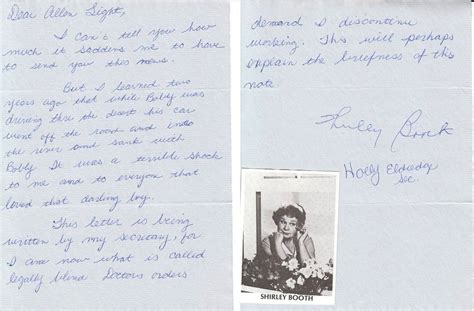 Dear Allan Light,
I can't tell you how
much it saddens me to have
to send you this news.
But I learned two
years ago that while Bobby was
driving thru the desert his car
went off the road and into
the river and sank with
Bobby. It was a terrible shock
to me and to everyone that
loved that darling boy.
This letter is being
written by my secretary, for
I am now what is called
legally blind Doctors orders
demand I discontinue
working. This will perhaps
explain the briefness of this
note.
Shirley Booth
Holly Eldredge
Sec.
SHIRLEY BOOTH